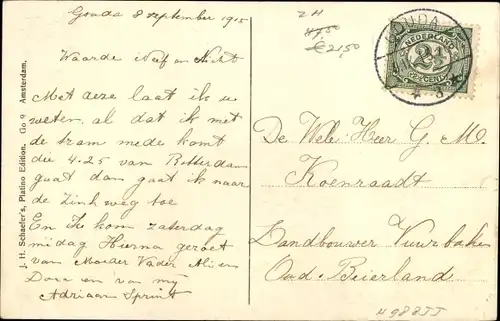 Gouda 8 September 1915
Waarde Neef en Nicht
Met deze laat ik u
weten al dat ik met
de tram mede komt
die 4.25 van Rotterdam
gaat dan gaat ik naar
de Zinkweg toe
En Ik kom zaterdag
midag Hierna groet
van Moeder Vader Alie en
Dora en van mij
Adriaan Sprint
J. H. Schaefer's, Platino Edition. Go 9 Amsterdam.
2H
€21,50
GOUDA
NEDERLAND
2½
CENT
De Wele Heer G. M.
Koenraadt
Landbouwer Vuurbaken
Oud-Beierland